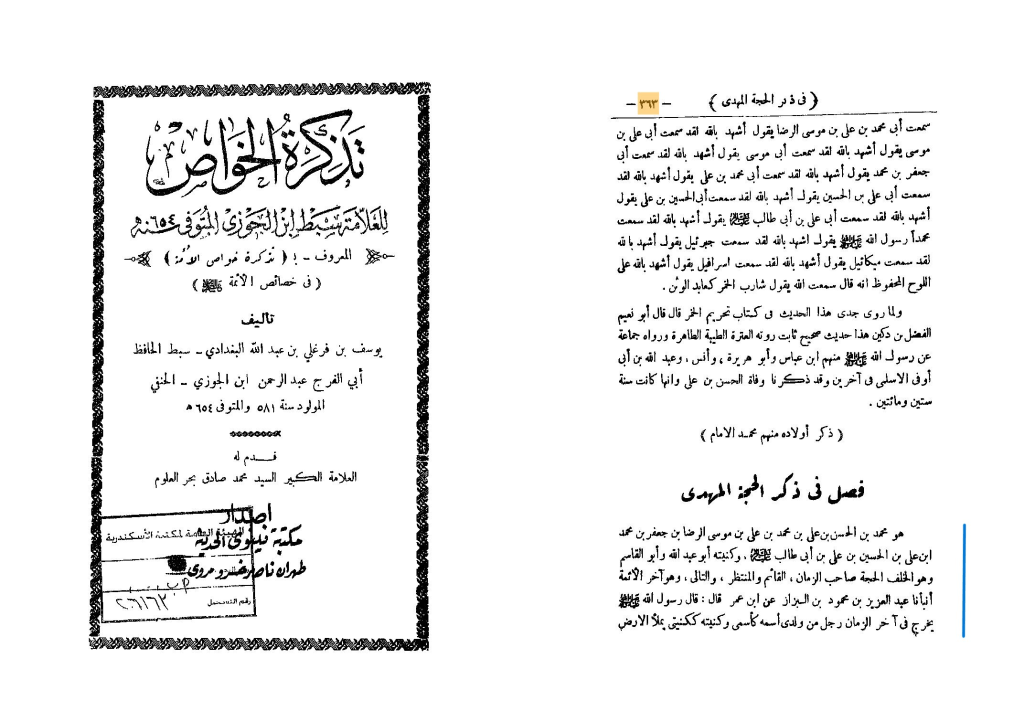 تذكرة الخواص
للعلامة سبط ابن الجوزي المتوفى سنة ٦٥٤ هـ
المعروف - بـ ( تذكرة خواص الأمة )
( في خصائص الأئمة ﷺ )
تأليف
يوسف بن فرغلي بن عبد الله البغدادي - سبط الحافظ
أبي الفرج عبد الرحمن ابن الجوزي - الحنفي
المولود سنة ٥٨١ والمتوفى ٦٥٤ هـ
قـدم له
العلامة الكبير السيد محمد صادق بحر العلوم
اصدار
مكتبة نينوى الحديثة
طهران ناصر خسرو مروى
الهيئة العامة لمكتبة الأسكندرية
رقم التسجيل ٢٦١٦٣
( فى ذكر الحجة المهدى ) - ٣٦٣ -
سمعت أبى محمد بن على بن موسى الرضا يقول أشهد بالله لقد سمعت أبى على بن
موسى يقول أشهد بالله لقد سمعت أبى موسى يقول أشهد بالله لقد سمعت أبى
جعفر بن محمد يقول أشهد بالله لقد سمعت أبى محمد بن على يقول أشهد بالله لقد
سمعت أبى على بن الحسين يقول أشهد بالله لقد سمعت أبى الحسين بن على يقول
أشهد بالله لقد سمعت أبى على بن أبى طالب يقول أشهد بالله لقد سمعت
محمداً رسول الله ﷺ يقول اشهد بالله لقد سمعت جبرئيل يقول أشهد بالله
لقد سمعت ميكائيل يقول أشهد بالله لقد سمعت اسرافيل يقول أشهد بالله على
اللوح المحفوظ انه قال سمعت الله يقول شارب الخمر كعابد الوثن .
ولما روى جدى هذا الحديث فى كتاب تحريم الخمر قال قال أبو نعيم
الفضل بن دكين هذا حديث صحيح ثابت روته العترة الطيبة الطاهرة ورواه جماعة
عن رسول الله ﷺ منهم ابن عباس وأبو هريرة ، وأنس ، وعبد الله بن أبى
أوفى الاسلمى فى آخرين وقد ذكرنا وفاة الحسن بن على وانها كانت سنة
ستين ومائتين .
( ذكر أولاده منهم محمد الامام )
فصل فى ذكر الحجة المهدى
هو محمد بن الحسن بن على بن محمد بن على بن موسى الرضا بن جعفر بن محمد
ابن على بن الحسين بن على بن أبى طالب ، وكنيته أبو عبد الله وأبو القاسم
وهو الخلف الحجة صاحب الزمان ، القائم والمنتظر ، والتالى ، وهو آخر الأئمة
أنبأنا عبد العزيز بن محمود بن البزاز عن ابن عمر قال : قال رسول الله ﷺ
يخرج فى آخر الزمان رجل من ولدى أسمه كأسمى وكنيته ككنيتى يملأ الارض